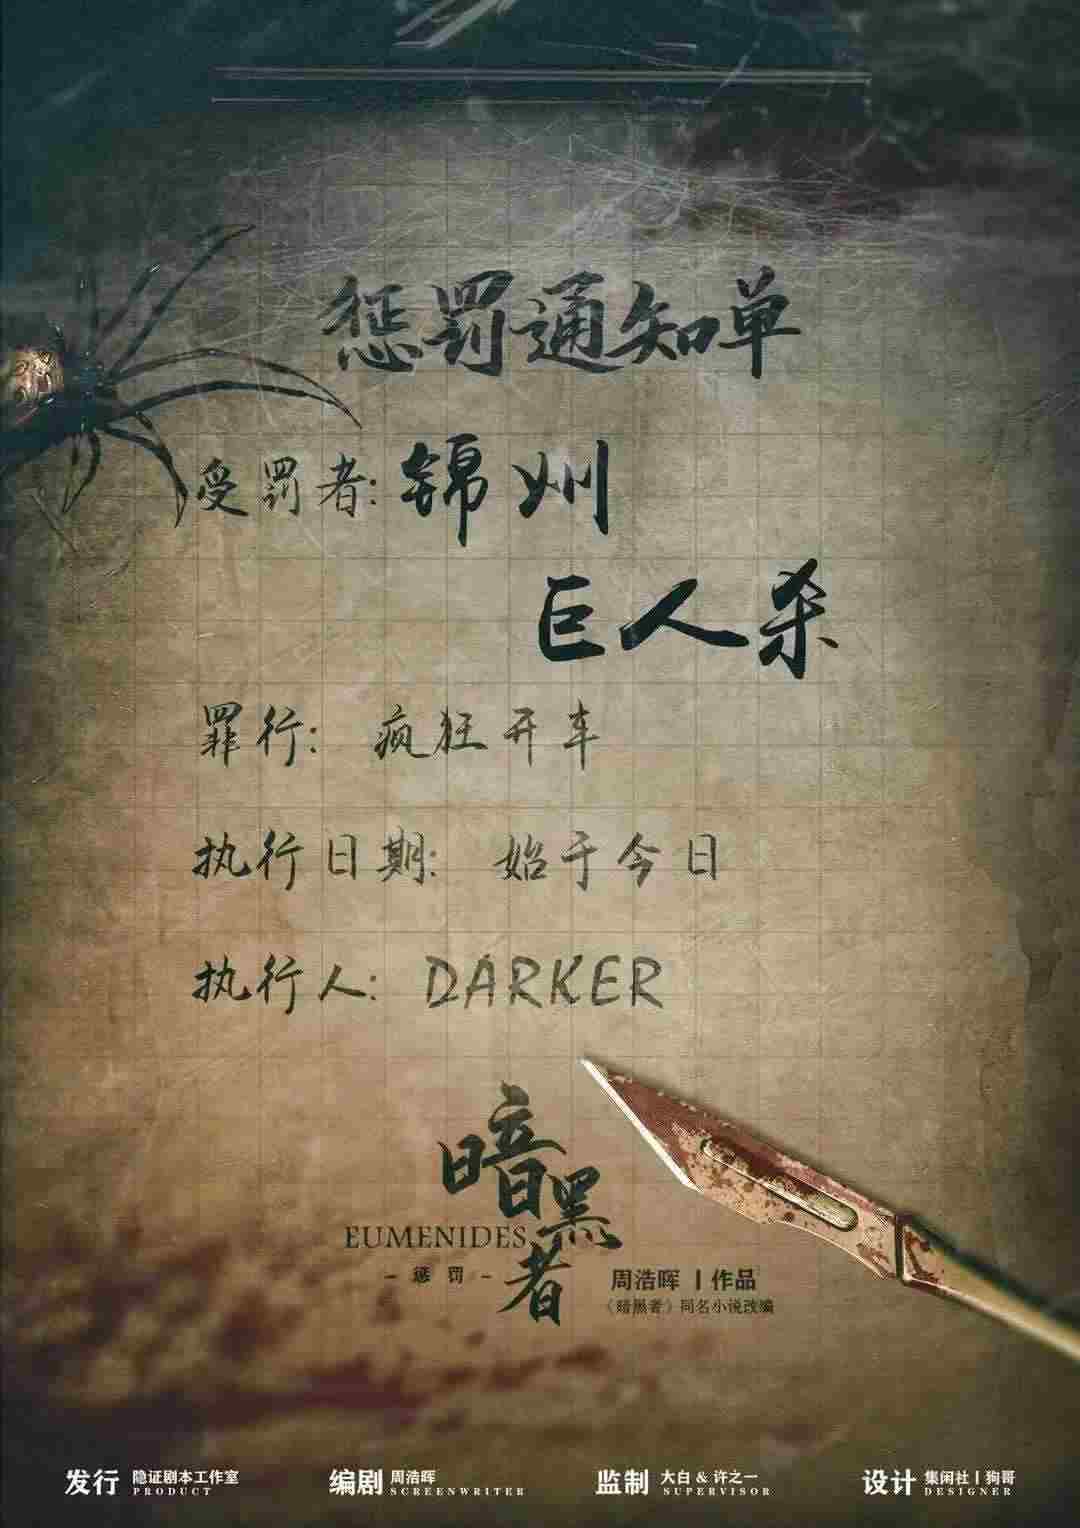 惩罚通知单
受罚者: 锦州
巨人杀
罪行: 疯狂开车
执行日期: 始于今日
执行人: DARKER
暗黑者
EUMENIDES
- 惩罚 -
周浩晖 | 作品
《暗黑者》同名小说改编
发行 隐证剧本工作室
PRODUCT
编剧 周浩晖
SCREENWRITER
监制 大白 & 许之一
SUPERVISOR
设计 集闲社 | 狗哥
DESIGNER